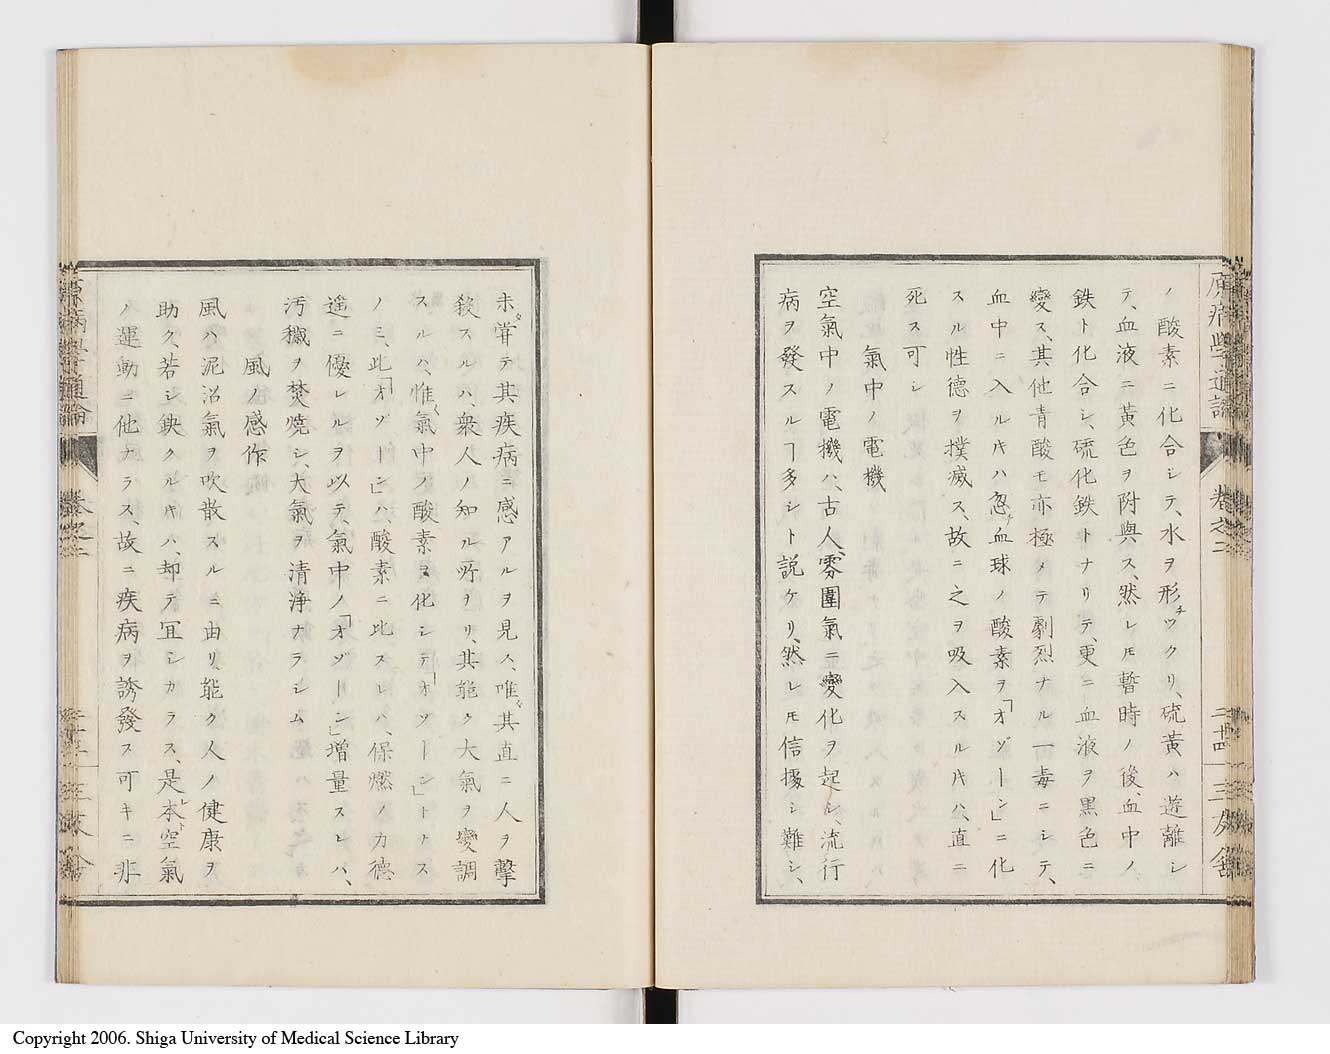 原病學通論
卷之二
二十四
三友舍
ノ酸素ニ化合シテ、水ヲ形ツクリ、硫黃ハ遊離シ
テ、血液ニ黃色ヲ附與ス、然レ𪜈暫時ノ後、血中ノ、
鉄ト化合シ、硫化鉄トナリテ、更ニ血液ヲ黑色ニ
變ス、其他青酸モ亦極メテ劇烈ナル一毒ニシテ、
血中ニ入ルキハ忽チ血球ノ酸素ヲ「オゾーン」ニ化
スル性德ヲ撲滅ス、故ニ之ヲ吸入スルキハ、直ニ
死ス可シ
氣中ノ電機
空氣中ノ電機ハ、古人、雰圍氣ニ變化ヲ起シ流行
病ヲ發スルヿ多シト説ケリ、然レ𪜈信據シ難シ、
未甞テ其疾病ニ感アルヲ見ス、唯其直ニ人ヲ擊
殺スルハ、衆人ノ知ル所ナリ、其能ク大氣ヲ變調
スルハ、惟氣中ノ酸素ヲ化シテ「オゾーン」トナス
ノミ、此「オゾーン」ハ、酸素ニ比スレハ、保燃ノ力德
遙ニ優レルヲ以テ、氣中ノ「オゾーン」增量スレハ、
汚穢ヲ焚燒シ、大氣ヲ清淨ナラシム
風ノ感作
風ハ泥沼氣ヲ吹散スルニ由リ、能ク人ノ健康ヲ
助ク、若シ缺クルキハ、却テ冝シカラス、是本空氣
ノ運動ニ他ナラス、故ニ疾病ヲ誘發ス可キニ非
原病學通論
卷之二